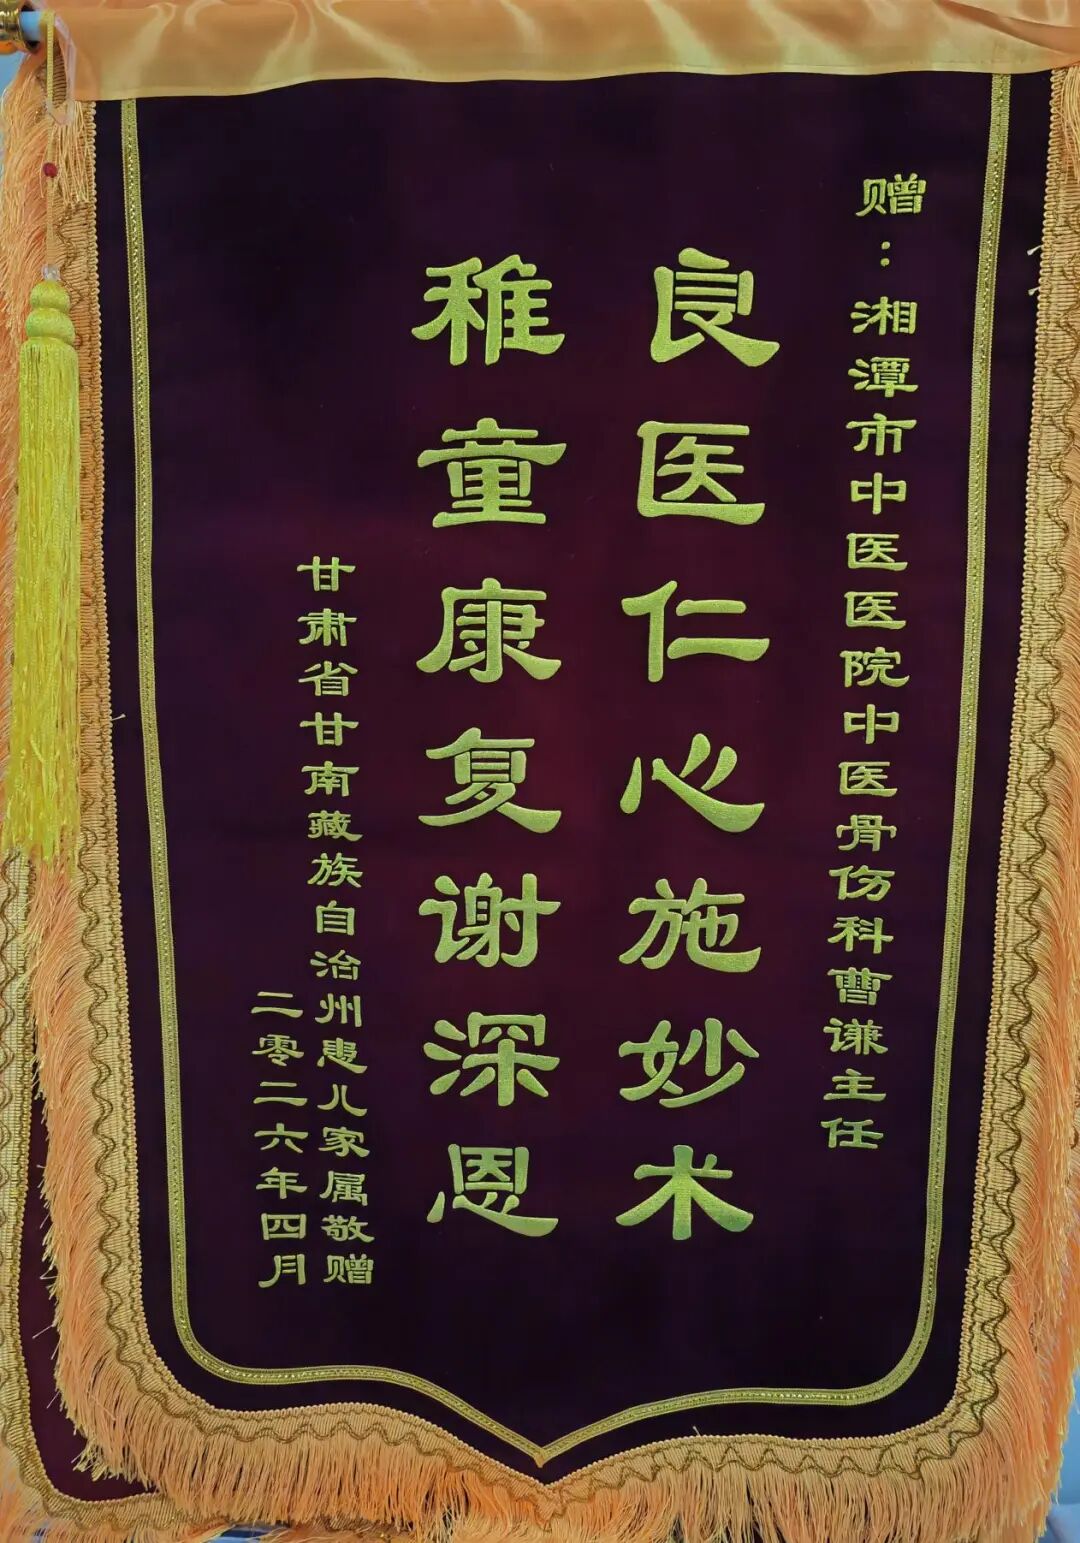 赠：湘潭市中医医院中医骨伤科曹谦主任
良医仁心施妙术
稚童康复谢深恩
甘肃省甘南藏族自治州患儿家属敬赠
二零二六年四月